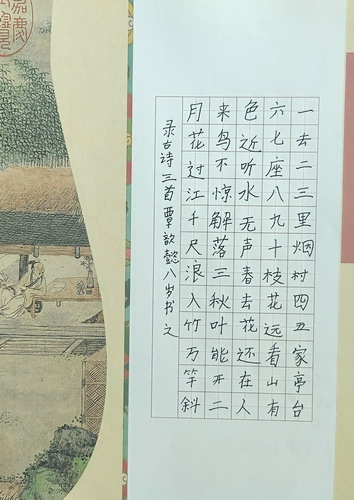 一去二三里烟村四五家亭台
六七座八九十枝花远看山有
色近听水无声春去花还在人
来鸟不惊解落三秋叶能开二
月花过江千尺浪入竹万竿斜
录古诗三首覃歆懿八岁书之
嘉慶